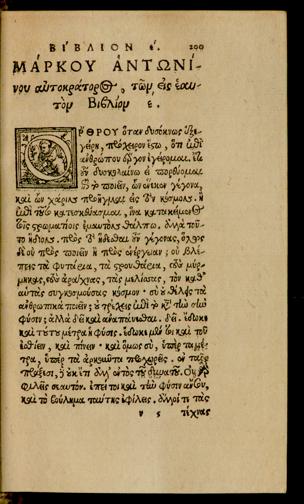 ΒΙΒΛΙΟΝ ε. 200
ΜΑΡΚΟΥ ΑΝΤΩΝΙ-
νου αὐτοκράτορος, τῶν εἰς ἑαυ-
τὸν Βιβλίον ε.
ΟΡΘΡΟΥ ὅταν δυσόκνως ἐξε-
γείρῃ, πρόχειρον ἔστω, ὅτι ἐπὶ
ἀνθρώπου ἔργον ἐγείρομαι. ἔτι
οὖν δυσκολαίνω εἰ πορεύομαι
ἐπὶ τὸ ποιεῖν, ὧν ἕνεκεν γέγονα,
καὶ ὧν χάριν προῆγμαι εἰς τὸν κόσμον. ἢ
ἐπὶ τοῦτο κατεσκεύασμαι, ἵνα κατακείμενος
ἐν στρωματίοις ἐμαυτὸν θάλπω, ἀλλὰ τοῦ-
το ἥδιον. πρὸς τὸ ἥδεσθαι οὖν γέγονας, ὅλως
δὲ οὐ πρὸς ποιεῖν ἢ πρὸς ἐνέργειαν; οὐ βλέ-
πεις τὰ φυτάρια, τὰ στρουθάρια, τοὺς μύρ-
μηκας, τοὺς ἀράχνας, τὰς μελίσσας, τὸν καθ'
αὑτὰς συγκοσμούσας κόσμον· σὺ οὐ θέλεις τὰ
ἀνθρωπικὰ ποιεῖν; οὐ τρέχεις ἐπὶ τὸ κατὰ τὴν σὴν
φύσιν; ἀλλὰ δεῖ καὶ ἀναπαύεσθαι. δεῖ. ἔδωκε
καὶ τούτου μέτρα ἡ φύσις. ἔδωκε μέντοι καὶ τοῦ
ἐσθίειν, καὶ πίνειν· καὶ ὅμως σὺ, ὑπὲρ τὰ μέ-
τρα, ὑπὲρ τὰ ἀρκοῦντα προχωρεῖς. ἐν ταῖς
πράξεσι, δ' οὐκ ἔτι ἀλλ' ἐντὸς τοῦ δυνατοῦ. Οὐ γὰρ
φιλεῖς σεαυτόν. ἐπεί τοι καὶ τὴν φύσιν ἄν σου,
καὶ τὸ βούλημα ταύτης ἐφίλεις. ἄλλοι τε τὰς
υ 5 τέχνας